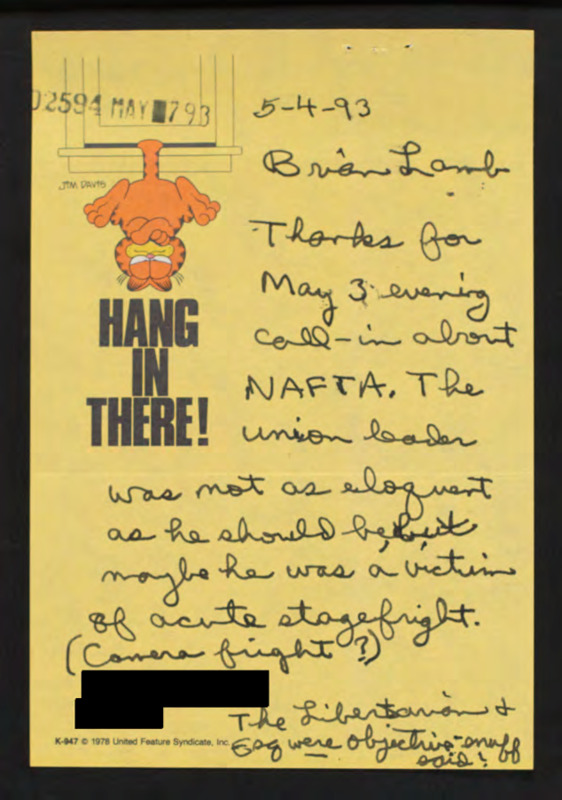 02594 MAY 793
JIM DAVIS
HANG
IN
THERE!
5-4-93
Brian Lamb
Thanks for
May 3 evening
call-in about
NAFTA. The
union leader
was not as eloquent
as he should be, but
maybe he was a victim
of acute stagefright.
(Camera fright?)
The Libertarian &
were objective-enuff
said!
K-947 © 1978 United Feature Syndicate, Inc.